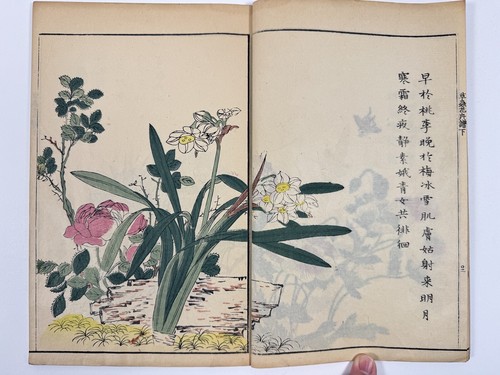 早於桃李晚於梅冰雪肌膚姑射來明月
寒霜終夜靜素娥青女共徘徊
花卉譜下